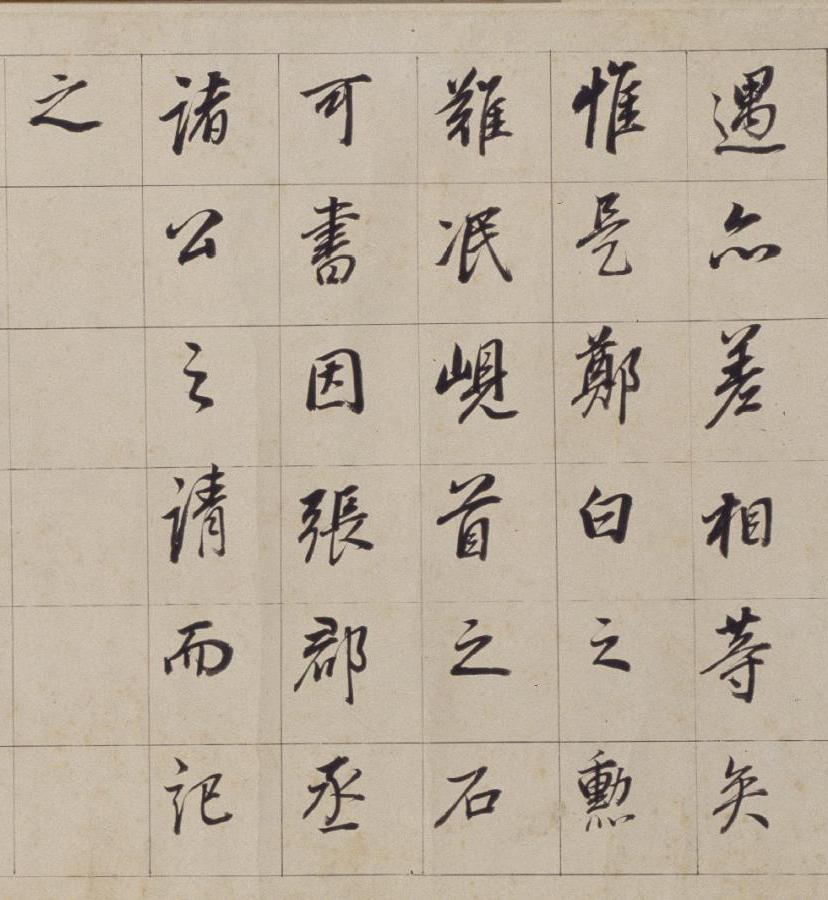 遇亦差相等矣
惟是鄭白之勲
難泯峴首之石
可書因張郡丞
諸公之請而記
之